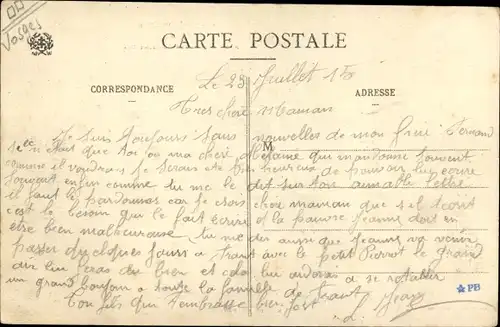 Vosges
CARTE POSTALE
CORRESPONDANCE
ADRESSE
Le 23 Juillet 15
Tres chère Maman
Je suis toujours sans nouvelles de mon frère Fernand
M
n'est que toi ou ma chère qui me donne souvent
comme il voudrais je serais très heureux de pouvoir lui ecrire
souvent enfin comme tu me le dit sur ton aimable lettre
il faut le pardonner car je crois chère maman que s'il ecrit
c'est le besoin que le fait ecrire et la pauvre Jeanne doit en
etre bien malheureuse tu me dis aussi que Jeanne va venir
passer quelques jours a avec le petit Pierrot le grand
air lui feras du bien et cela lui aidera a se retablir
un grand bonjour a toute la famille de
Ton fils qui t'embrasse bien fort
PB